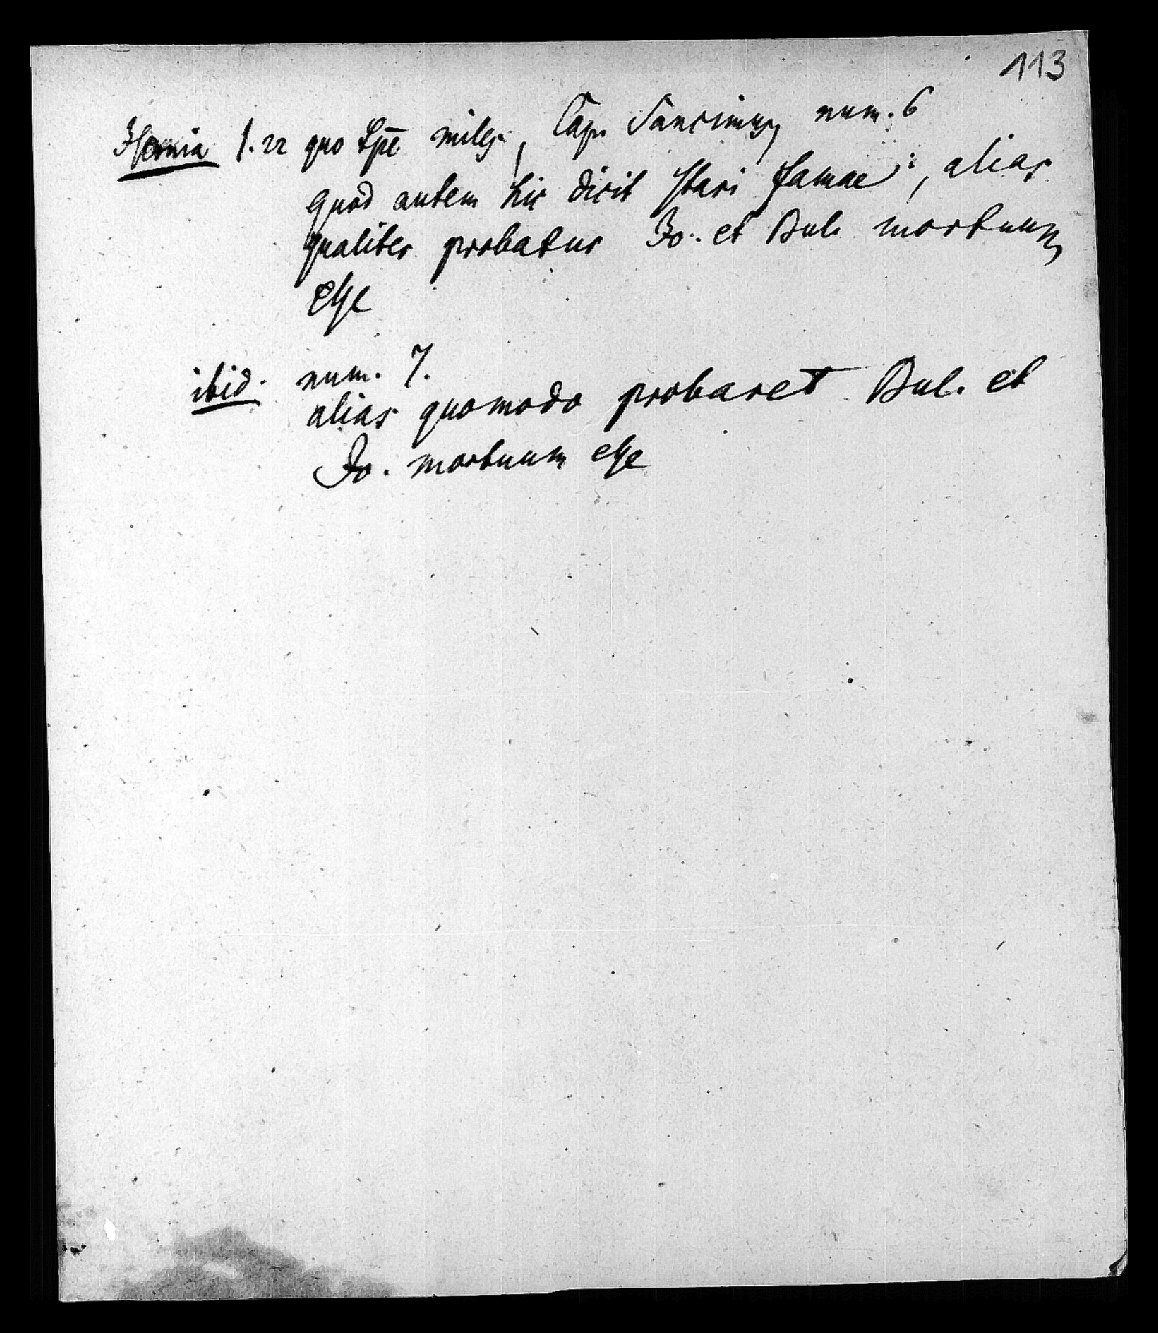 113
Isernia f. 22 quo tp̄e miles, Cap. Sancimus, num. 6
quod autem hic dicit stari famae, alias
qualiter probatur Jo. et Bul. mortuum
esse
ibid. num. 7.
alias quomodo probaret Bul. et
Jo. mortuum esse